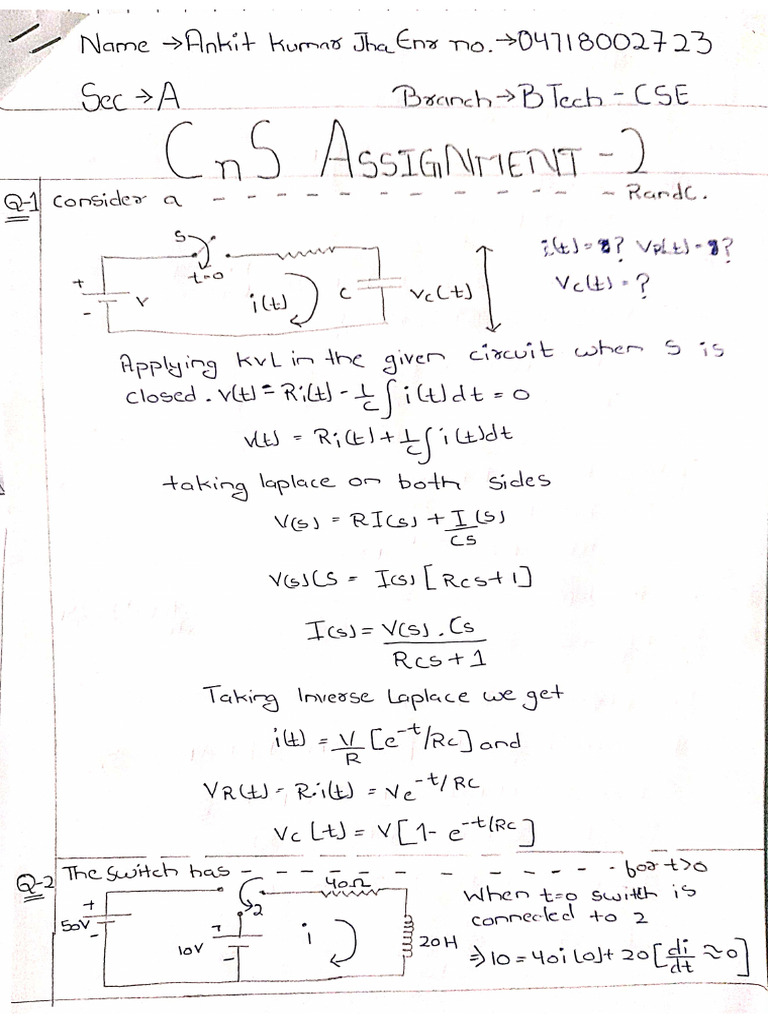 Name → Ankit Kumar Jha Enr no. → 04718002723
Sec → A Branch → B Tech - CSE
CnS ASSIGNMENT - 2
Q-1 Consider a - - - - - - - - - - - - - - R and C.
S
t=0
+
-
V
i(t)
C
Vc(t)
i(t) = ? VR(t) = ?
Vc(t) = ?
Applying KVL in the given circuit when S is
closed. V(t) = Ri(t) - 1/C ∫ i(t) dt = 0
V(t) = Ri(t) + 1/C ∫ i(t) dt
taking laplace on both sides
V(s) = RI(s) + I(s)/Cs
V(s)CS = I(s) [Rcs+1]
I(s) = V(s) . Cs / Rcs + 1
Taking Inverse Laplace we get
i(t) = V/R [e^-t/RC] and
VR(t) = Ri(t) = Ve^-t/RC
Vc(t) = V[1 - e^-t/RC]
Q-2 The switch has - - - - - - - - - - - - for t>0
+
50V
-
2
+
10V
-
40Ω
i
20H
When t=0 switch is
connected to 2
⇒ 10 = 40i(0) + 20 [di/dt ≈ 0]